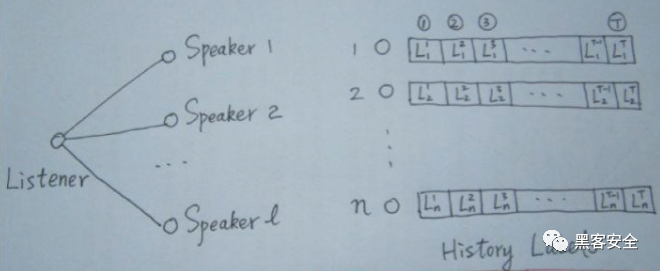 Speaker 1
Speaker 2
...
Speaker l
Listener
① ② ③ Ⓣ
1 L₁¹ L₁² L₁³ ... L₁ᵀ⁻¹ L₁ᵀ
2 L₂¹ L₂² L₂³ ... L₂ᵀ⁻¹ L₂ᵀ
n Lₙ¹ Lₙ² Lₙ³ ... Lₙᵀ⁻¹ Lₙᵀ
History Labels
黑客安全